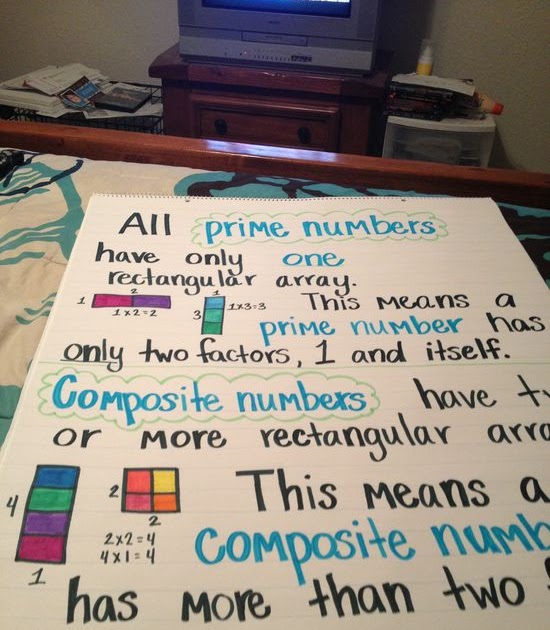 All prime numbers
have only one
rectangular array.
1 2 1x2=2
3 1 1x3=3
This means a
prime number has
only two factors, 1 and itself.
Composite numbers have
or more rectangular
4 1
2 2
2x2=4
4x1=4
This means a
Composite
has more than two